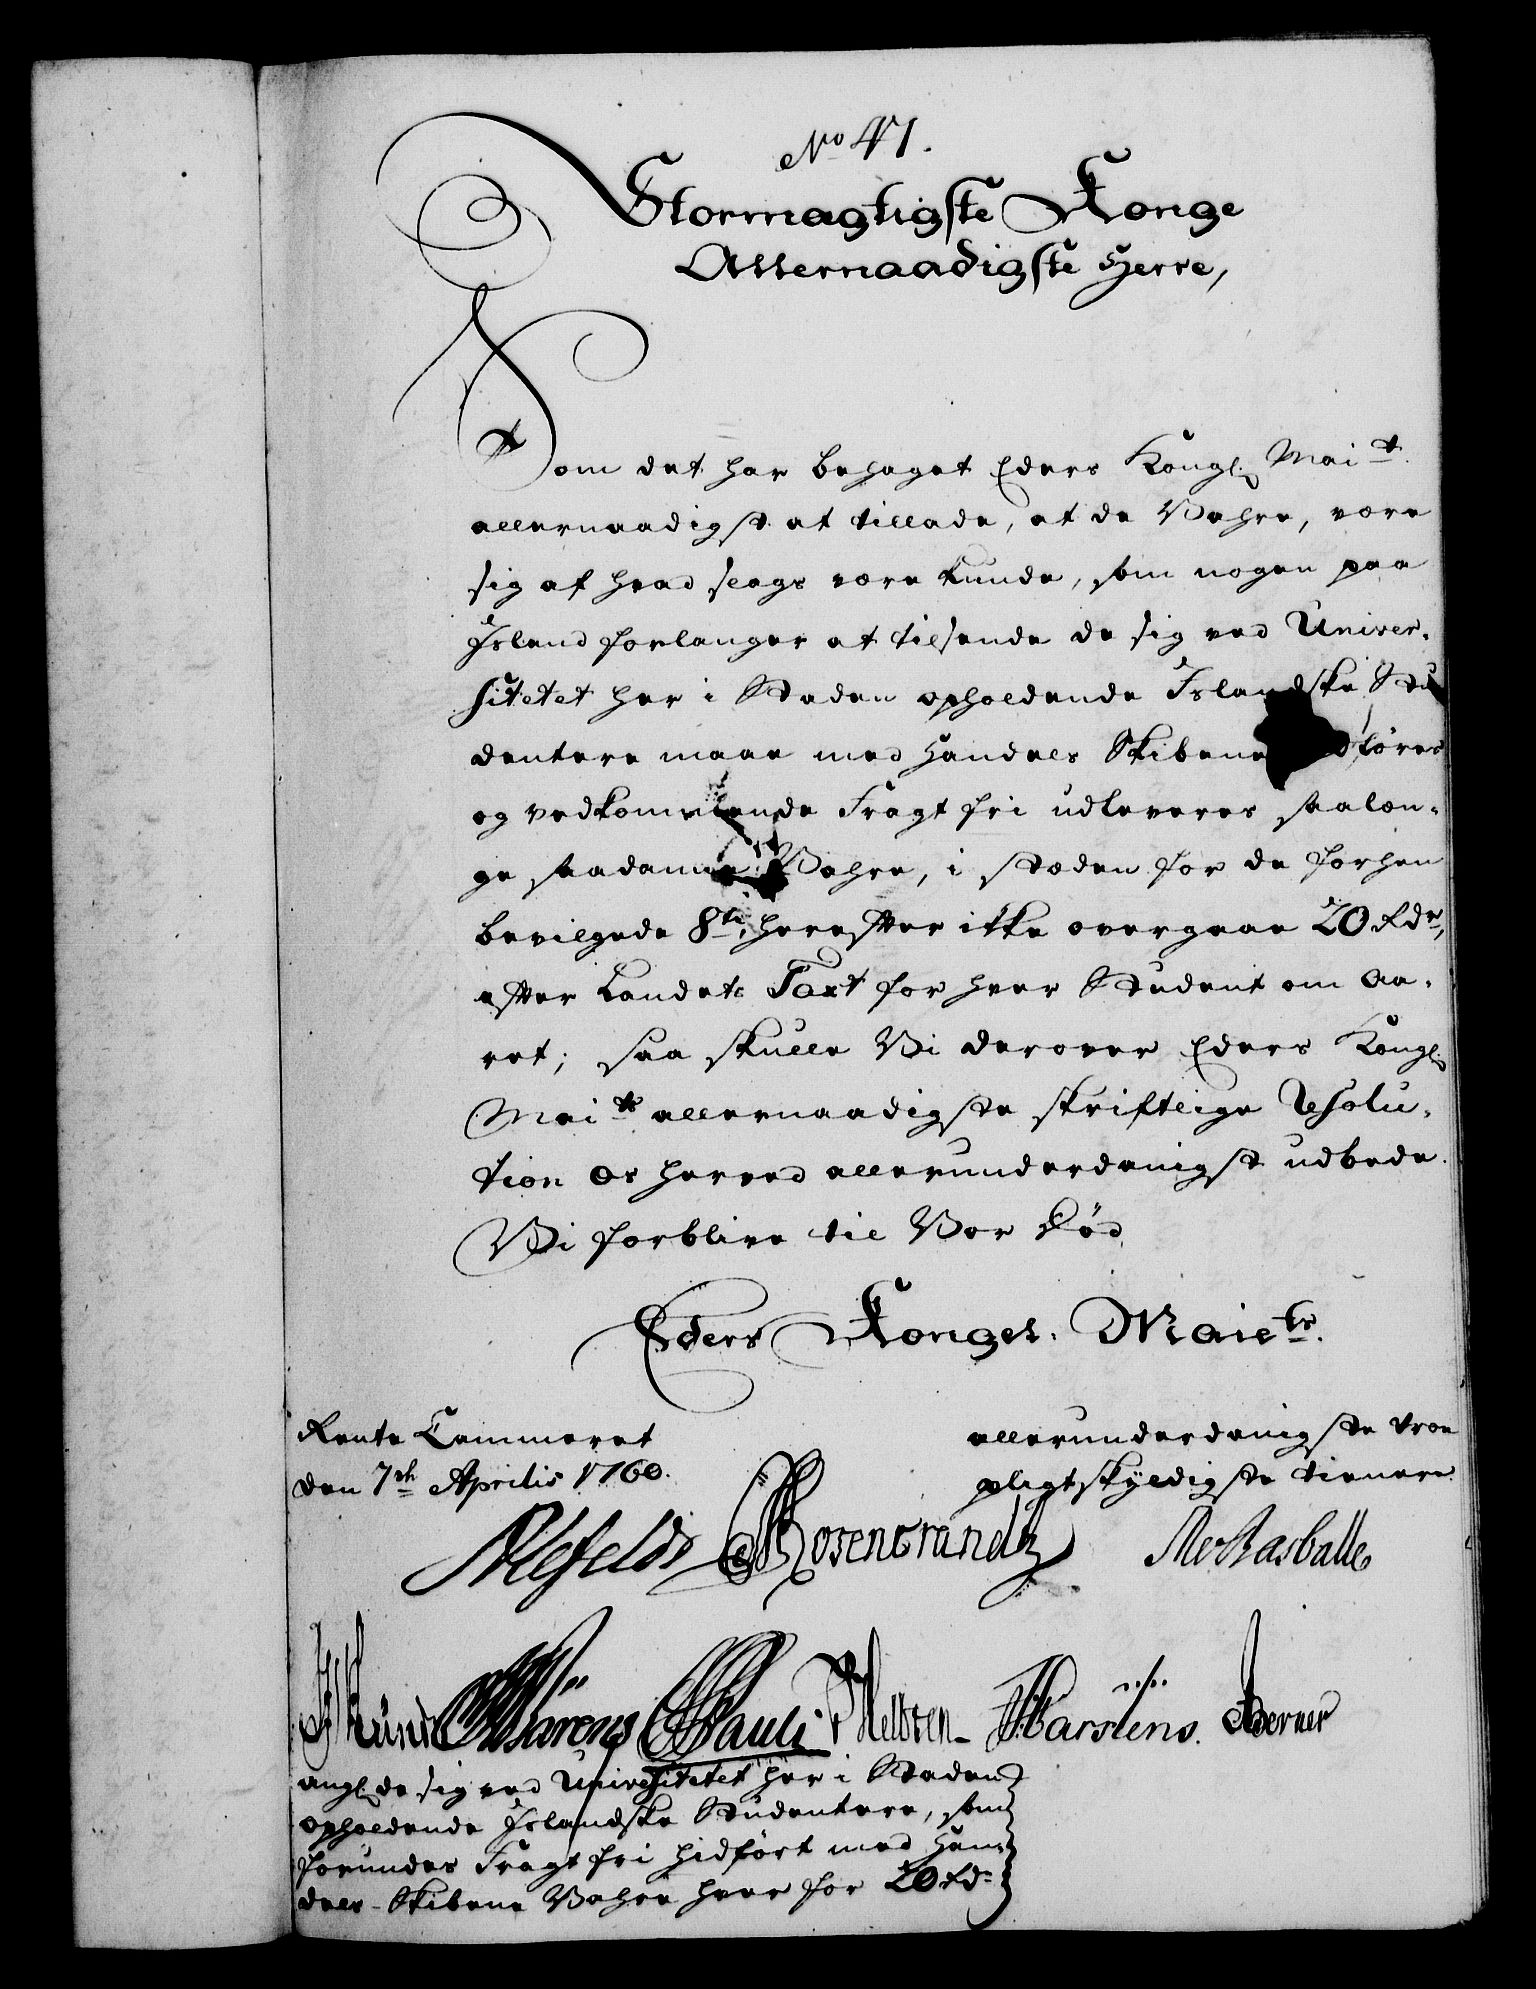 No 41.
Stormagtigste Konge
Allernaadigste Herre,
Som det har behaget Eders Kongl. Mait
allernaadigst at tillade, at de Vahre, være
sig af hvad slags være kunde, som nogen paa
Island forlanger at tilsende de sig ved Univer-
sitetet her i Staden opholdende Islandske Stu
dentere maae med Handels Skibene føres
og vedkommende Fragt fri udleveres saalæn-
ge saadanne Vahre, i stæden for de forhen
bevilgede 8te, herefter ikke overgaae 20 Rdr,
efter Landets Taxt for hver Student om Aa-
ret; saa skulle Vi derover Eders Kongl.
Maits allernaadigste skriftlige Resolu-
tion os herved allerunderdanigst udbede.
Vi forblive til Vor Död
Eders Kongel. Maiets.
Rente Cammeret
den 7de Aprilis 1760.
allerunderdanigste troe
pligtskyldigste tienere
Alefeldt Rosencrandtz Rasballe
Pauli Holsten Karstens. Berner
angl. de sig ved Universitetet her i Staden
opholdende Islandske Studentere, som
forundes Fragt fri hidført med Han-
dels-Skibene Vahre hver for 20 rdr